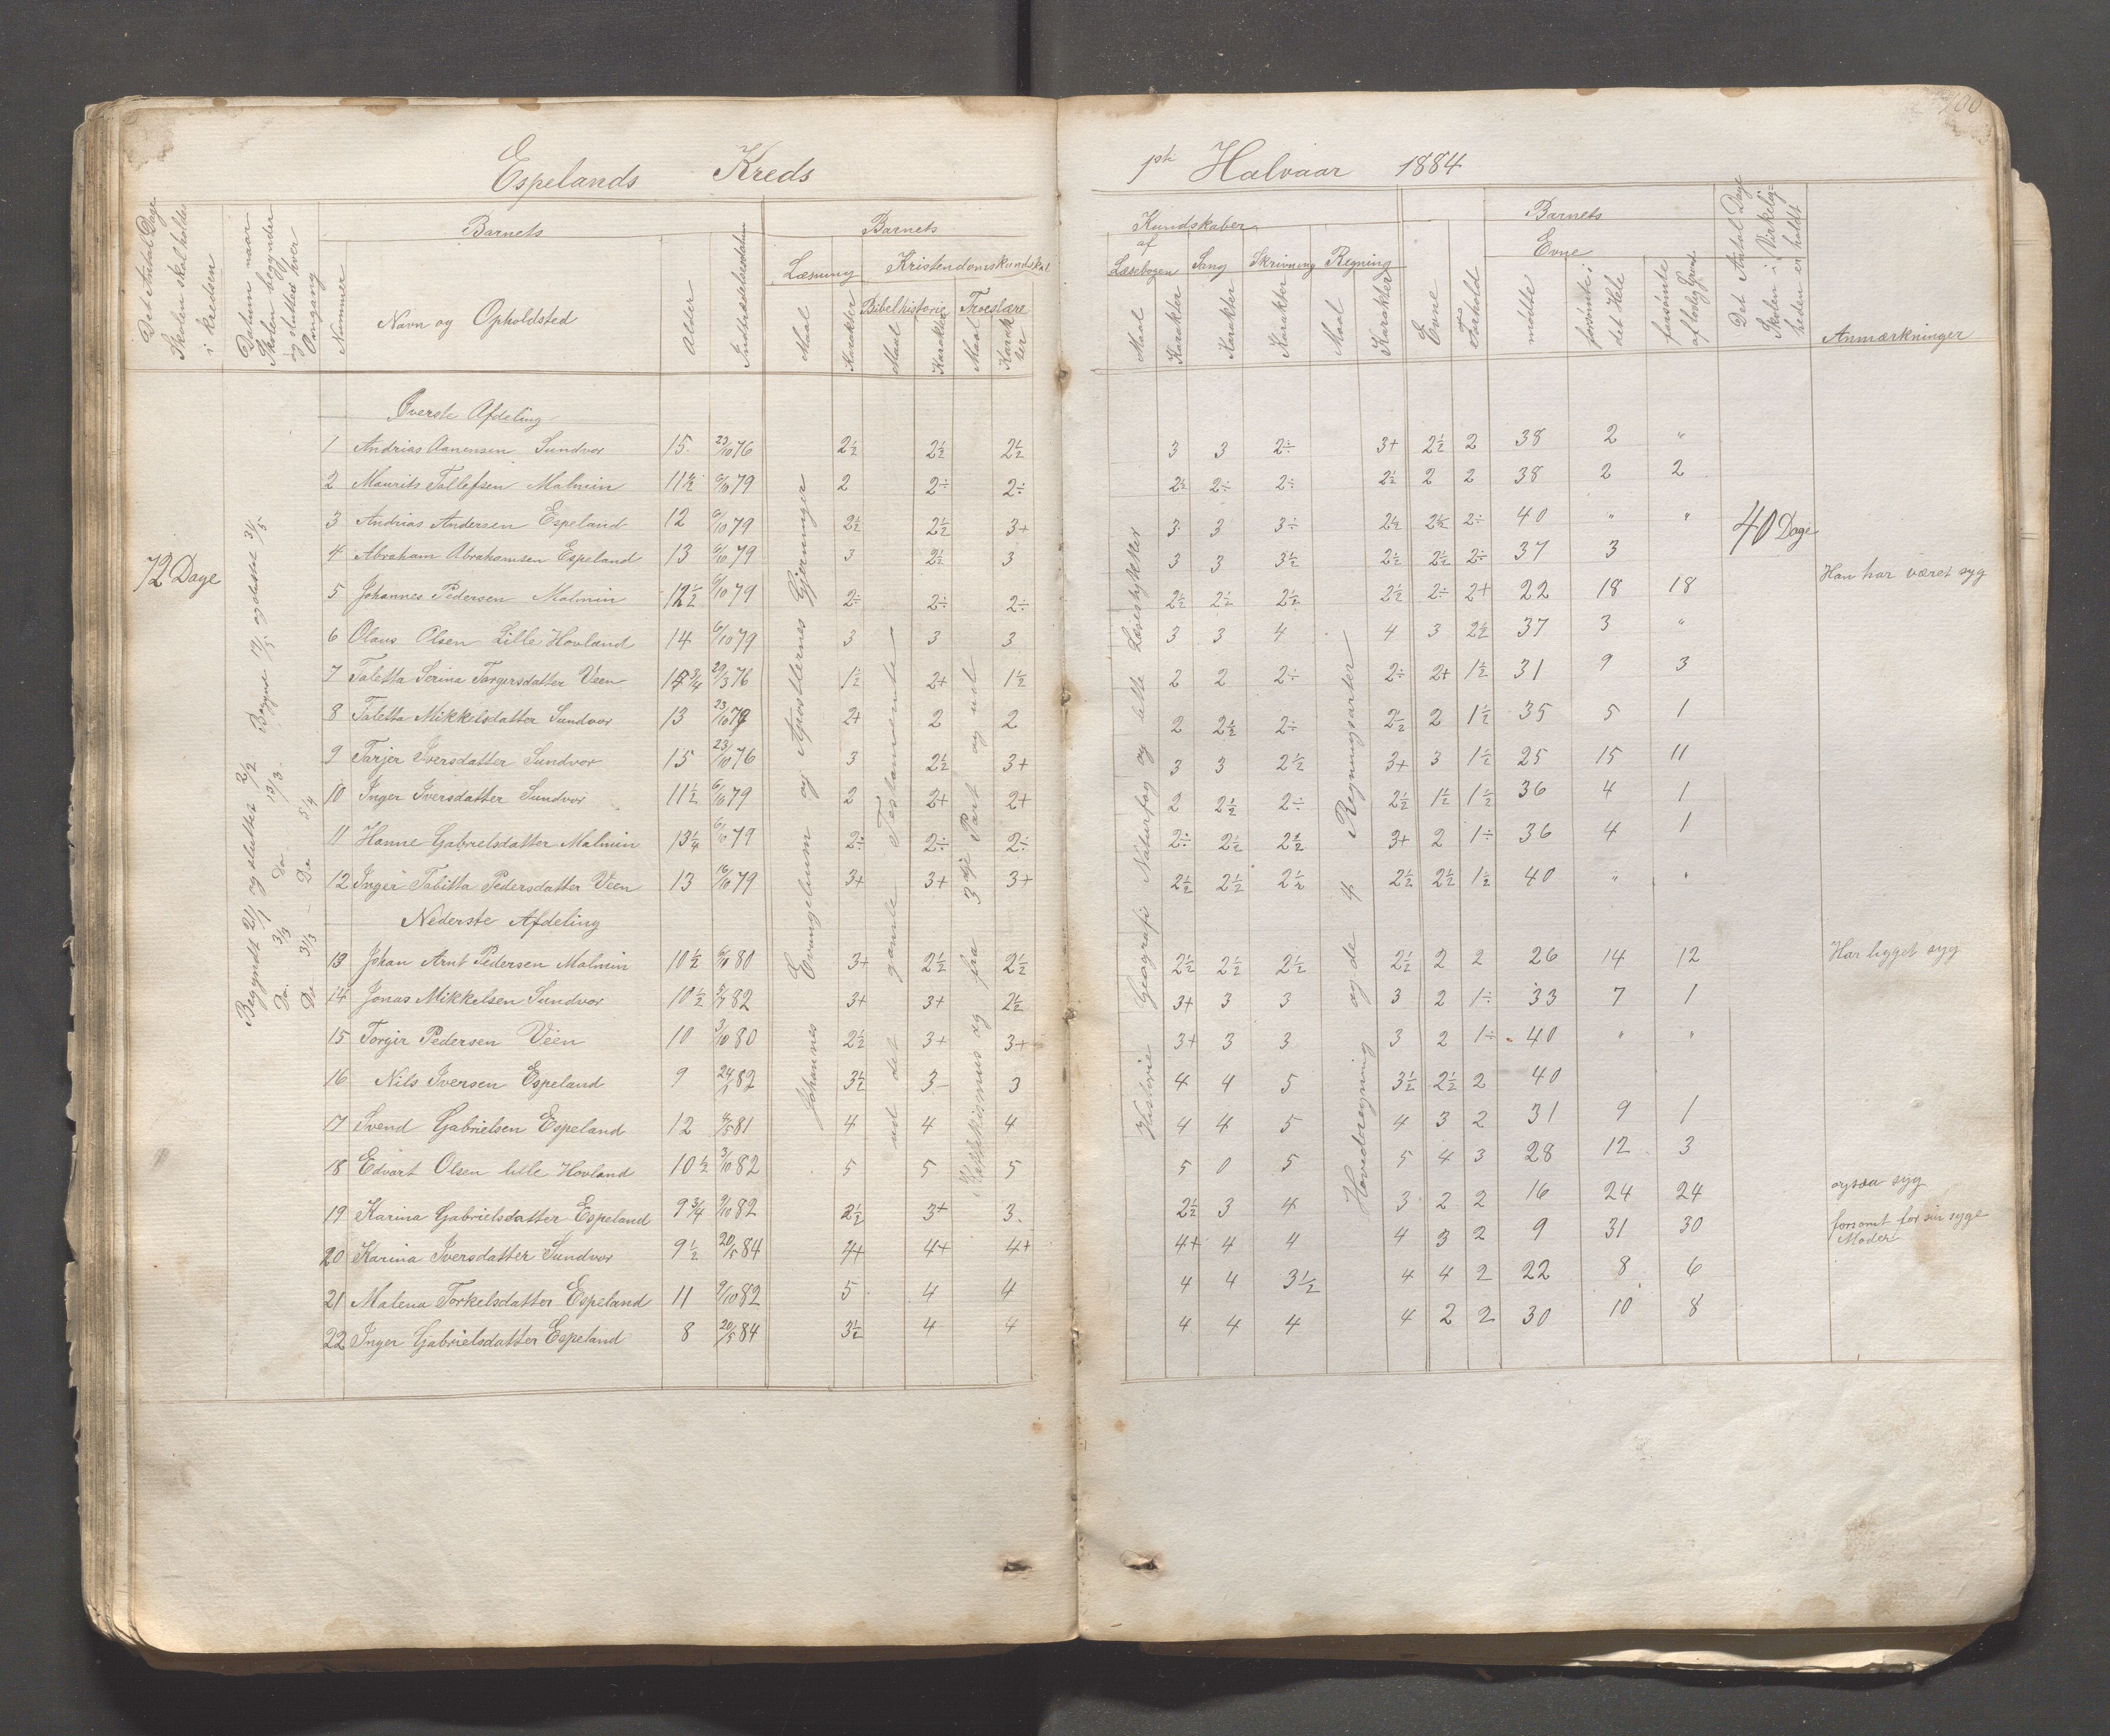 Espelands Kreds
Det Antal Dage Skolen skal holdes i kredsen
Datum naar Skolen begynder og sluttes hver Omgang
Barnets
Nummer
Navn og Opholdsted
Alder
Indtrædelsesdatum
Barnets
Læsning
Maal
Karakter
Kristendomskundskab
Bibelhistorie
Maal
Karakter
Troeslære
Maal
Karakter
72 Dage
Begyndt 21/1 og sluttet 2/2 Begynt 12/5 og sluttet 31/5
Do. 3/3 Do 13/3
Do 31/3 – Do 5/4
Johannes Evangelium og Apostlernes Gjerninger
ud det gamle Testamente
Katekismus og fra 3die Part og ud
Øverste Afdeling
1 Andrias Aanensen Sundvor 15 23/10 76 2½ 2½ 2½
2 Maurits Tollefsen Malmin 11½ 6/10 79 2 2÷ 2÷
3 Andrias Andersen Espeland 12 6/10 79 2½ 2½ 3+
4 Abraham Abrahamsen Espeland 13 6/10 79 3 2½ 3
5 Johannes Pedersen Malmin 12½ 6/10 79 2÷ 2÷ 2÷
6 Olaus Olsen Lille Hovland 14 6/10 79 3 3 3
7 Taletta Serina Torgersdatter Veen 14¾ 29/3 76 1½ 2+ 1½
8 Taletta Mikkelsdatter Sundvor 13 23/10 79 2+ 2 2
9 Tarjer Iversdatter Sundvor 15 23/10 76 3 2½ 3+
10 Inger Iversdatter Sundvor 11½ 6/10 79 2 2+ 2+
11 Hanne Gabrielsdatter Malmin 13¼ 6/10 79 2÷ 2÷ 2÷
12 Inger Tabitta Pedersdatter Veen 13 16/10 79 3+ 3+ 3+
Nederste Afdeling
13 Johan Arnt Pedersen Malmin 10½ 6/10 80 3+ 2½ 2½
14 Jonas Mikkelsen Sundvor 10½ 82 3+ 3+ 2½
15 Torgir Pedersen Veen 10 3/10 80 2½ 3+ 3+
16 Nils Iversen Espeland 9 82 3½ 3 3
17 Svend Gabrielsen Espeland 12 81 4 4 4
18 Edvart Olsen lille Hovland 10½ 3/10 82 5 5 5
19 Karina Gabrielsdatter Espeland 9¾ 9/10 82 2½ 3+ 3
20 Karina Iversdatter Sundvor 9½ 20/5 84 4+ 4+ 4+
21 Malena Torkelsdatter Espeland 11 9/10 82 5 4 4
22 Inger Gabrielsdatter Espeland 8 20/5 84 3½ 4 4
100
1ste Halvaar 1884
Kundskaber
af Læsebogen
Maal
Karakter
Sang
Karakter
Skrivning
Karakter
Regning
Maal
Karakter
Evne
Forholdt
Barnets
Evne
mødte
forsømte i det Hele
forsømte af lovlig Grund
Det Antal Dage Skolen i Virkeligheden er holdt
Anmærkninger
Historie Geografi Naturfag og lette Læsestykker
Hovedregning og de 4 Regningsarter
40 Dage
3 3 2÷ 3+ 2½ 2 38 2 "
2½ 2÷ 2÷ 2½ 2 2 38 2 2
3 3 3÷ 2½ 2½ 2÷ 40 " "
3 3 3½ 2½ 2½ 2÷ 37 3
2½ 2½ 2½ 2½ 2÷ 2+ 22 18 18 Han har været syg
3 3 4 4 3 2½ 37 3 "
2 2 2÷ 2÷ 2+ 1½ 31 9 3
2 2½ 2÷ 2½ 2 1½ 35 5 1
3 3 2½ 3+ 3 1½ 25 15 11
2 2½ 2÷ 2½ 1½ 1½ 36 4 1
2÷ 2½ 2½ 3+ 2 1÷ 36 4 1
2½ 2½ 2½ 2½ 2½ 1½ 40 " "
2½ 2½ 2½ 2½ 2 2 26 14 12 Har ligget syg
3+ 3 3 3 2 1÷ 33 7 1
3+ 3 3 3 2 1÷ 40 " "
4 4 5 3½ 2½ 2 40
4 4 5 4 3 2 31 9 1
5 0 5 5 4 3 28 12 3
2½ 3 4 3 2 2 16 24 24 ogsaa syg
4+ 4 4 4 3 2 9 31 30 forsømt for sin syge Moder
4 4 3½ 4 4 2 22 8 6
4 4 4 4 2 2 30 10 8